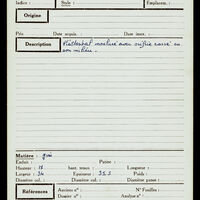 Indice : Style : Emplacem. :
Origine
Prix Date acquis. : Date inv. :
Description Piédestal mouluré avec orifice carré en
son milieu.
Matière : grès
Enduit : Patine :
Hauteur : 18 haut. tenon : Longueur :
Largeur : 34 Epaisseur : 31.5 Poids :
Diamètre : Diamètre col. : Diamètre panse :
Références Anciens n° : N° Fouilles :
Dossier n° : Analyse n° :